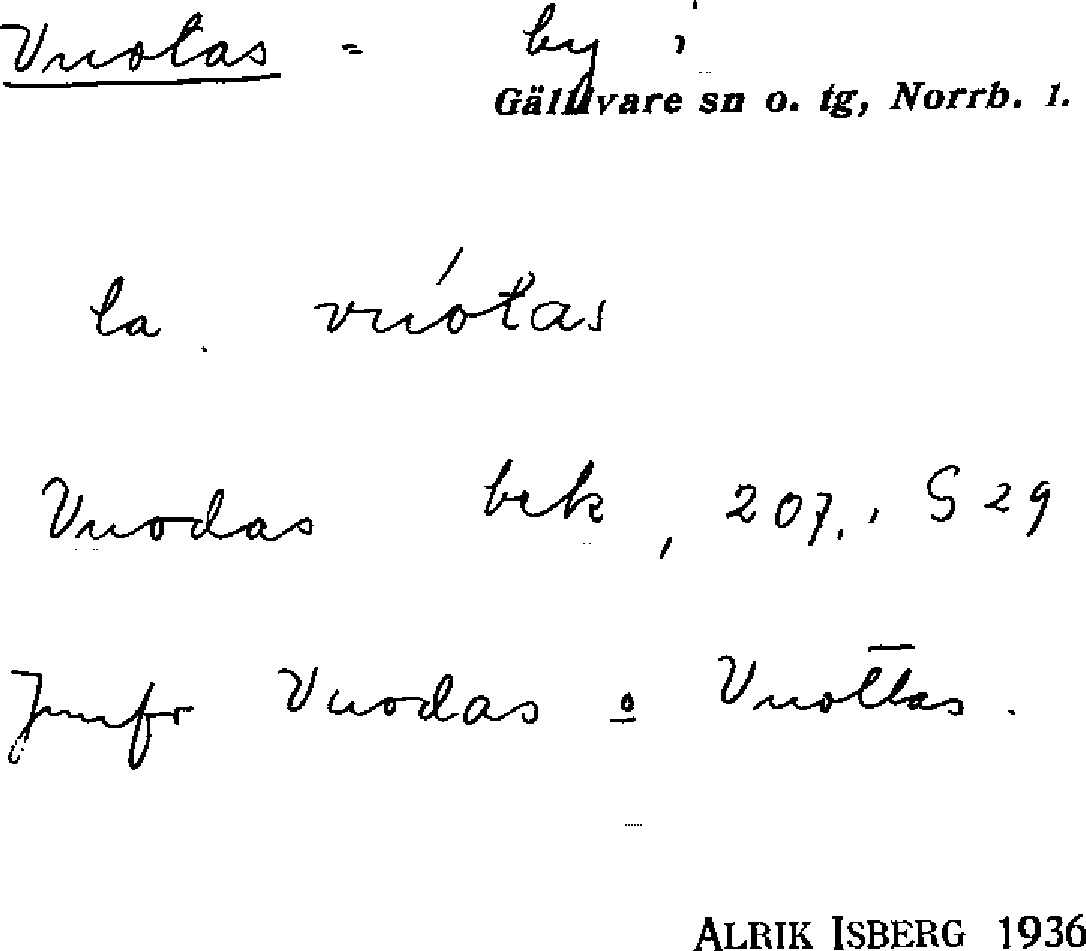 Vuotas = by i
Gällivare sn o. tg, Norrb. l.
la. vuótas
Vuodas bek, 207., S 29
Jmfr Vuodas o Vuottas.
ALRIK ISBERG 1936